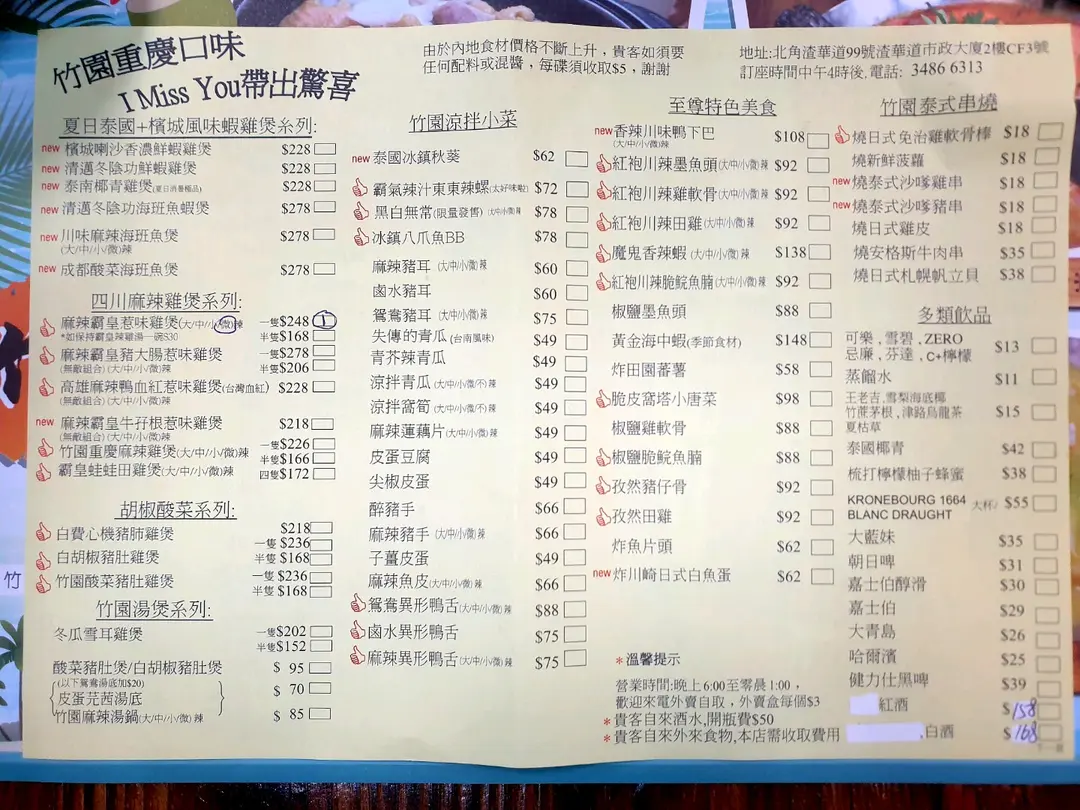 竹園重慶口味
I Miss You帶出驚喜
由於內地食材價格不斷上升，貴客如須要
任何配料或混醬，每碟須收取$5，謝謝
地址:北角渣華道99號渣華道市政大廈2樓CF3號
訂座時間中午4時後,電話: 3486 6313
夏日泰國+檳城風味蝦雞煲系列:
new 檳城喇沙香濃鮮蝦雞煲 $228
new 清邁冬陰功鮮蝦雞煲 $228
new 泰南椰青雞煲(夏日消暑極品) $228
new 清邁冬陰功海班魚蝦煲 $278
new 川味麻辣海班魚煲 $278
(大/中/小/微)辣
new 成都酸菜海班魚煲 $278
四川麻辣雞煲系列:
麻辣霸皇惹味雞煲(大/中/小/微)辣 一隻$248 1
*如保持霸皇辣雞湯一碗$30 半隻$168
麻辣霸皇豬大腸惹味雞煲 一隻$278
(無敵組合) (大/中/小/微)辣 半隻$206
高雄麻辣鴨血紅惹味雞煲(台灣血紅) $228
(無敵組合) (大/中/小/微)辣
new 麻辣霸皇牛孖根惹味雞煲 $218
(無敵組合) (大/中/小/微)辣
竹園重慶麻辣雞煲(大/中/小/微)辣 一隻$226
半隻$166
霸皇蛙蛙田雞煲(大/中/小/微)辣 四隻$172
胡椒酸菜系列:
白費心機豬肺雞煲 $218
白胡椒豬肚雞煲 一隻$236
半隻$168
竹園酸菜豬肚雞煲 一隻$236
半隻$168
竹園湯煲系列:
冬瓜雪耳雞煲 一隻$202
半隻$152
酸菜豬肚煲/白胡椒豬肚煲 $ 95
(以下鴛鴦湯底加$20)
皮蛋芫茜湯底 $ 70
竹園麻辣湯鍋(大/中/小/微) 辣 $ 85
竹園涼拌小菜
new 泰國冰鎮秋葵 $62
霸氣辣汁東東辣螺(太好味啦) $72
黑白無常(限量發售) (大/中/小/微)辣 $78
冰鎮八爪魚BB $78
麻辣豬耳 (大/中/小/微)辣 $60
鹵水豬耳 $60
鴛鴦豬耳 (大/中/小/微)辣 $75
失傳的青瓜(台南風味) $49
青芥辣青瓜 $49
涼拌青瓜(大/中/小/微/不)辣 $49
涼拌窩筍(大/中/小/微/不)辣 $49
麻辣蓮藕片(大/中/小/微)辣 $49
皮蛋豆腐 $49
尖椒皮蛋 $49
醉豬手 $66
麻辣豬手 (大/中/小/微)辣 $66
子薑皮蛋 $49
麻辣魚皮(大/中/小/微) 辣 $66
鴛鴦異形鴨舌(大/中/小/微) 辣 $88
鹵水異形鴨舌 $75
麻辣異形鴨舌(大/中/小/微) 辣 $75
至尊特色美食
new 香辣川味鴨下巴 $108
(大/中/小/微)辣
紅袍川辣墨魚頭(大/中/小/微)辣 $92
紅袍川辣雞軟骨(大/中/小/微)辣 $92
紅袍川辣田雞(大/中/小/微)辣 $92
魔鬼香辣蝦(大/中/小/微)辣 $138
紅袍川辣脆鯇魚腩(大/中/小/微)辣 $92
椒鹽墨魚頭 $88
黃金海中蝦(季節食材) $148
炸田園蕃薯 $58
脆皮窩塔小唐菜 $98
椒鹽雞軟骨 $88
椒鹽脆鯇魚腩 $88
孜然豬仔骨 $92
孜然田雞 $92
炸魚片頭 $62
new 炸川崎日式白魚蛋 $62
*溫馨提示
營業時間:晚上6:00至零晨1:00，
歡迎來電外賣自取，外賣盒每個$3
*貴客自來酒水,開瓶費$50
*貴客自來外來食物,本店需收取費用
竹園泰式串燒
燒日式免治雞軟骨棒 $18
燒新鮮菠蘿 $18
new 燒泰式沙嗲雞串 $18
new 燒泰式沙嗲豬串 $18
燒日式雞皮 $18
燒安格斯牛肉串 $35
燒日式札幌帆立貝 $38
多類飲品
可樂 , 雪碧 , ZERO
忌廉 , 芬達 , C+檸檬 $13
蒸餾水 $11
王老吉,雪梨海底椰
竹蔗茅根 , 津路烏龍茶 $15
夏枯草
泰國椰青 $42
梳打檸檬柚子蜂蜜 $38
KRONEBOURG 1664
BLANC DRAUGHT 大杯/ $55
大藍妹 $35
朝日啤 $31
嘉士伯醇滑 $30
嘉士伯 $29
大青島 $26
哈爾濱 $25
健力仕黑啤 $39
紅酒 $158
,白酒 $168